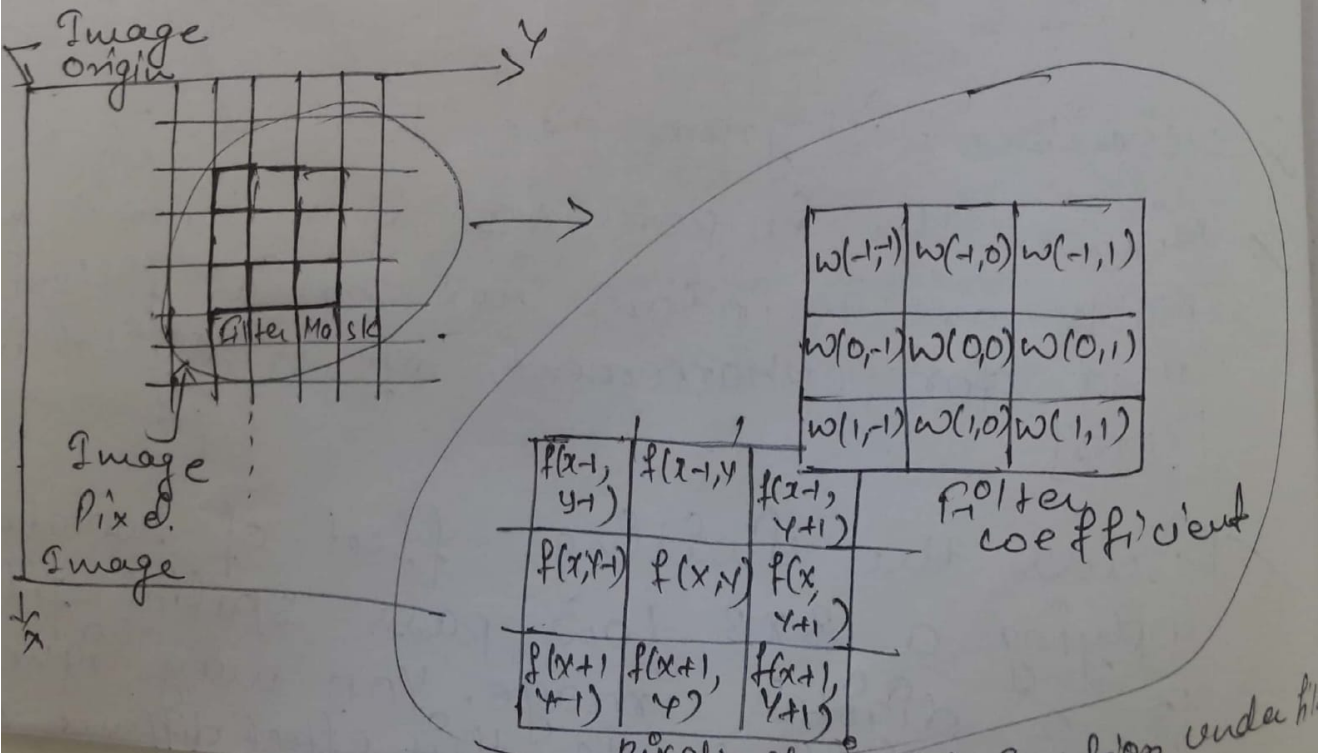 Image
Origin
Y
Filter Mask
Image
Pixel
Image
x
w(-1,-1) w(-1,0) w(-1,1)
w(0,-1) w(0,0) w(0,1)
w(1,-1) w(1,0) w(1,1)
Filter
coefficient
f(x-1, f(x-1,y f(x-1,
y-1) y+1)
f(x,y-1) f(x,y) f(x,
y+1)
f(x+1 f(x+1, f(x+1,
y-1) y) y+1)
under